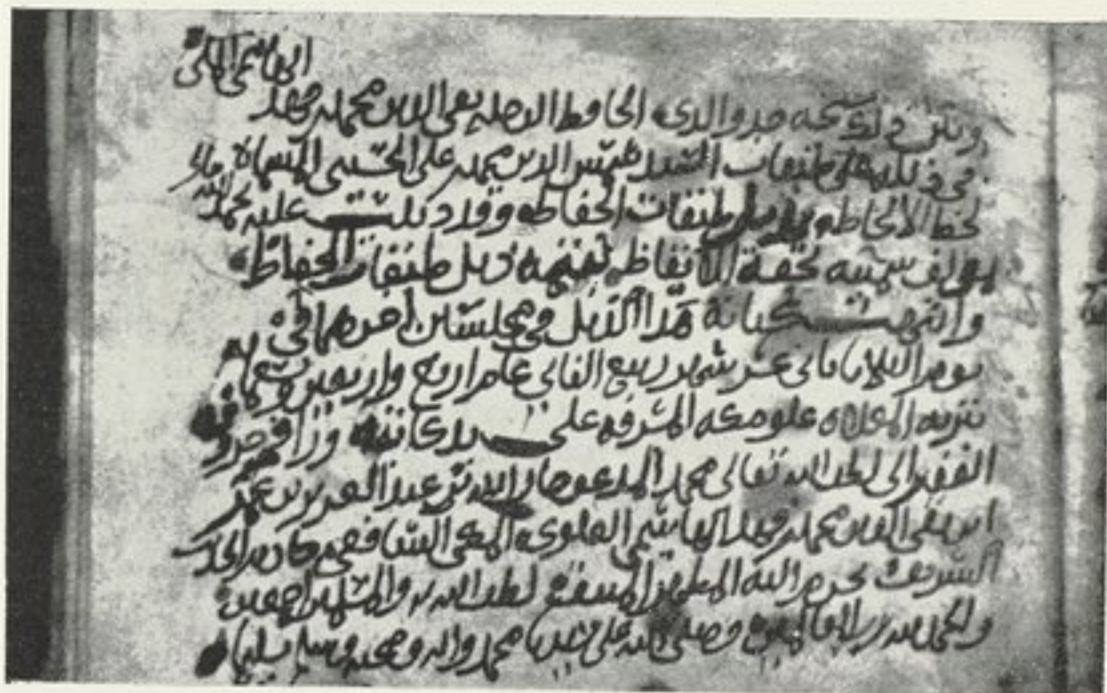 الهاشمي المكي
وشيخ شيخه جد والدي الحافظ الرحله تقي الدين محمد بن فهد
في ذيله على طبقات السيد شمس الدين محمد بن علي الحسيني المسماة
لحظ الالحاظ بذيل طبقات الحفاظ وقد ذيلت عليه بحمد الله تعالى
بمؤلف سميته تحفة الايقاظ بتتمة ذيل طبقات الحفاظ
وانتهت كتابة هذا الذيل في مجلسين اخرهما في
يوم الثلاثا ثاني عشر شهر ربيع الثاني عام اربع واربعين وتسعمائة
بتربة المعلاه علو مكه المشرفه على يد كاتبه
الفقير الى لطف الله تعالى محمد المدعو جار الله بن عبد العزيز بن عمر
ابن تقي الدين محمد بن فهد الهاشمي العلوي المكي الشافعي خادم الحديث
الشريف بحرم الله المطهر المنيف لطف الله به والمسلمين اجمعين
والحمد لله رب العالمين وصلى الله على سيدنا محمد واله وصحبه وسلم تسليما